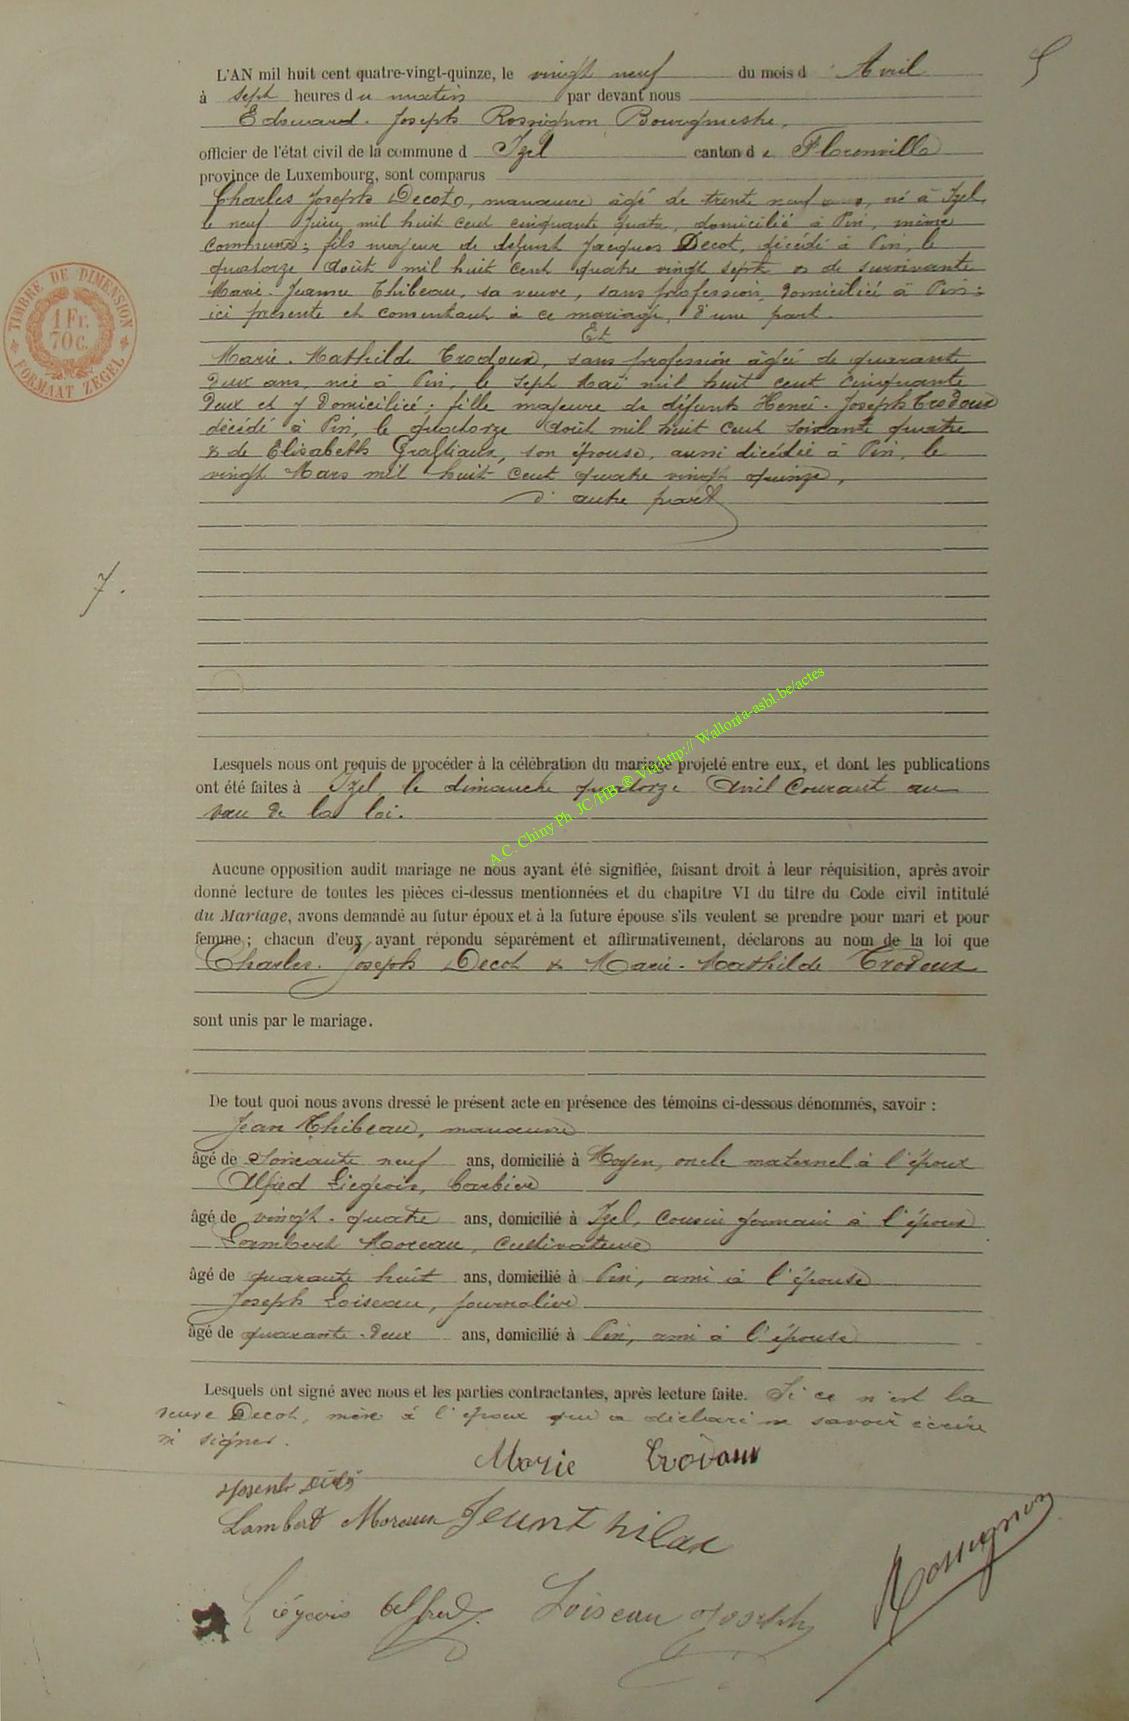 5
L'AN mil huit cent quatre-vingt-quinze, le vingt neuf du mois d Avril
à sept heures du matin par devant nous
Edouard-Joseph Rossignon Bourgmestre,
officier de l'état civil de la commune d Izel canton de Florenville
province de Luxembourg, sont comparus
Charles Joseph Decot, manœuvre âgé de trente neuf ans, né à Izel,
le neuf Juin mil huit cent cinquante quatre, domicilié à Pin, même
commune; fils majeur de défunt Jacques Decot, décédé à Pin, le
quatorze Août mil huit cent quatre vingt sept & de survivante
Marie-Jeanne Thibeau, sa veuve, sans profession, domiciliée à Pin;
ici présente et consentant à ce mariage, d'une part.
Et
Marie-Mathilde Trodoux, sans profession âgée de quarante
deux ans, née à Pin, le sept Mai mil huit cent cinquante
deux et y domiciliée; fille majeure de défunts Henri-Joseph Trodoux
décédé à Pin, le quatorze Août mil huit cent soixante quatre
& de Elisabeth son épouse, aussi décédée à Pin, le
vingt Mars mil huit cent quatre vingt quinze,
d'autre part
TIMBRE DE DIMENSION
1 Fr.
70 c.
FORMAAT ZEGEL
7.
Lesquels nous ont requis de procéder à la célébration du mariage projeté entre eux, et dont les publications
ont été faites à Izel, le dimanche quatorze Avril Courant au
vœu de la loi.
A.C. Chiny Ph JC/HB ® Via http:// Wallonia-asbl.be/actes
Aucune opposition audit mariage ne nous ayant été signifiée, faisant droit à leur réquisition, après avoir
donné lecture de toutes les pièces ci-dessus mentionnées et du chapitre VI du titre du Code civil intitulé
du Mariage, avons demandé au futur époux et à la future épouse s'ils veulent se prendre pour mari et pour
femme; chacun d'eux ayant répondu séparément et affirmativement, déclarons au nom de la loi que
Charles-Joseph Decot & Marie-Mathilde Trodoux
sont unis par le mariage.
De tout quoi nous avons dressé le présent acte en présence des témoins ci-dessous dénommés, savoir :
Jean Thibeau, manœuvre
âgé de soixante neuf ans, domicilié à Moyen, oncle maternel à l'époux
Alfred Liégeois, Barbier
âgé de vingt-quatre ans, domicilié à Izel, cousin germain à l'époux
Lambert Moreau, cultivateur
âgé de quarante huit ans, domicilié à Pin, ami à l'épouse
Joseph Loiseau, journalier
âgé de quarante-deux ans, domicilié à Pin, ami à l'épouse
Lesquels ont signé avec nous et les parties contractantes, après lecture faite. Si ce n'est la
veuve Decot, mère à l'époux qui a déclaré ne savoir écrire
ni signer.
Marie Trodoux
Lambert Moreau
Liégeois Alfred
Loiseau Joseph
Rossignon